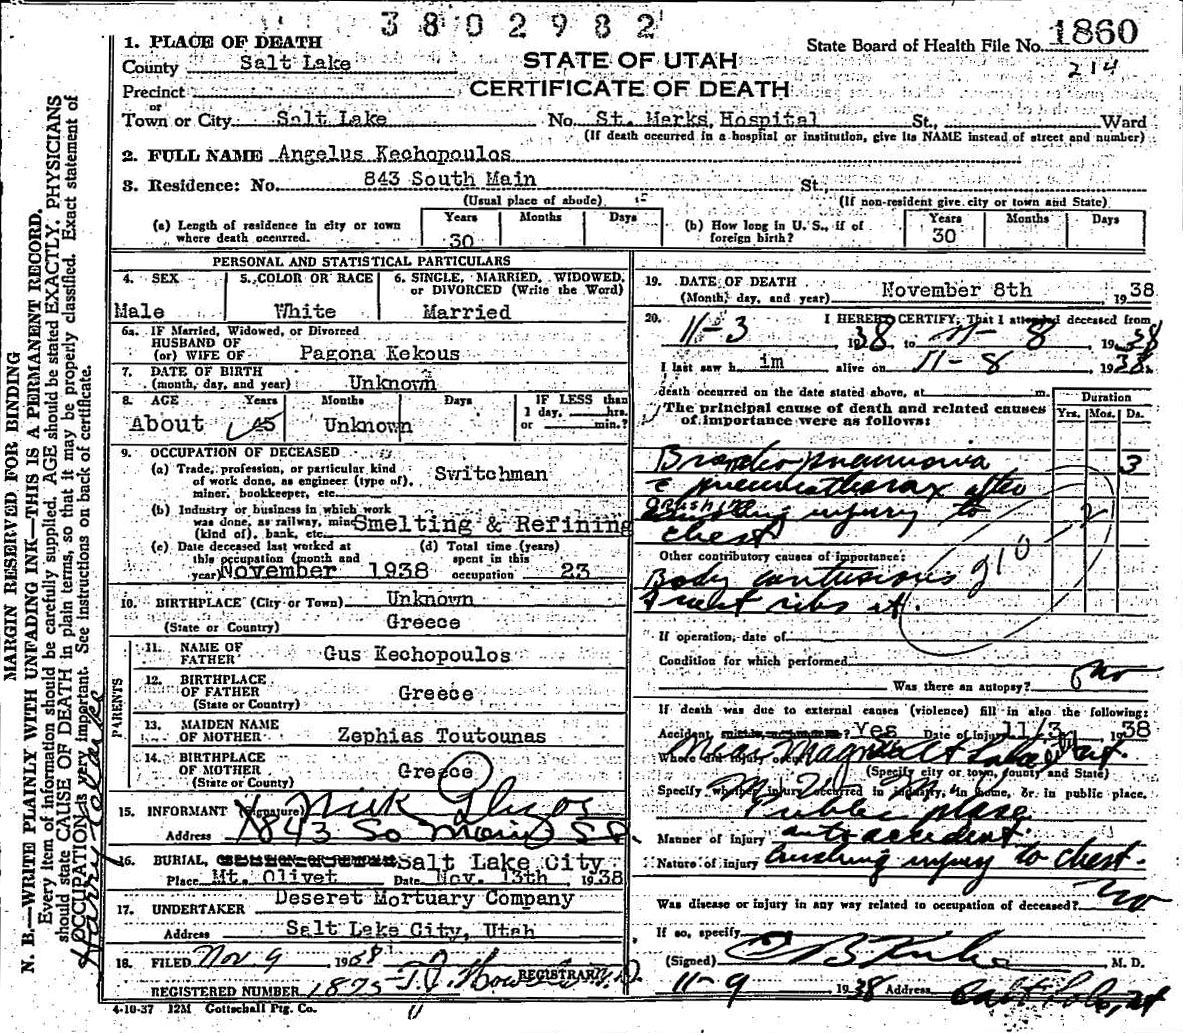 3802982
1860
State Board of Health File No.
214
1. PLACE OF DEATH
County Salt Lake
STATE OF UTAH
Precinct
CERTIFICATE OF DEATH
or
Town or City Salt Lake No. St. Marks Hospital St., Ward
(If death occurred in a hospital or institution, give its NAME instead of street and number)
2. FULL NAME Angelus Kechopoulos
3. Residence: No. 843 South Main St.,
(Usual place of abode) (If non-resident give city or town and State)
(a) Length of residence in city or town where death occurred. Years 30 Months Days
(b) How long in U. S., if of foreign birth? Years 30 Months Days
PERSONAL AND STATISTICAL PARTICULARS
4. SEX Male
5. COLOR OR RACE White
6. SINGLE, MARRIED, WIDOWED, or DIVORCED (Write the Word) Married
6a. IF Married, Widowed, or Divorced
HUSBAND OF
(or) WIFE OF Pagona Kekous
7. DATE OF BIRTH
(month, day, and year) Unknown
8. AGE Years Months Days IF LESS than
1 day, hrs.
or min.?
About 45 Unknown
9. OCCUPATION OF DECEASED
(a) Trade, profession, or particular kind
of work done, as engineer (type of),
miner, bookkeeper, etc. Switchman
(b) Industry or business in which work
was done, as railway, mine
(kind of), bank, etc. Smelting & Refining
(c) Date deceased last worked at
this occupation (month and
year) November 1938
(d) Total time (years)
spent in this
occupation 23
10. BIRTHPLACE (City or Town) Unknown
(State or Country) Greece
PARENTS
11. NAME OF
FATHER Gus Kechopoulos
12. BIRTHPLACE
OF FATHER Greece
(State or Country)
13. MAIDEN NAME
OF MOTHER Zephias Toutounas
14. BIRTHPLACE
OF MOTHER Greece
(State or County)
15. INFORMANT (Signature) Nick
Address 843 So Main St
16. BURIAL, Salt Lake City
Place Mt. Olivet Date Nov. 13th 1938
17. UNDERTAKER Deseret Mortuary Company
Address Salt Lake City, Utah
18. FILED Nov 9 1938
REGISTRAR
REGISTERED NUMBER 1875
4-10-37 12M Gottschall Ptg. Co.
19. DATE OF DEATH
(Month, day, and year) November 8th, 1938
20. I HEREBY CERTIFY, That I attended deceased from
11-3, 1938, to 11-8, 1938
I last saw him alive on 11-8, 1938
death occurred on the date stated above, at m.
The principal cause of death and related causes
of importance were as follows:
Duration
Yrs. Mos. Ds.
Broncho pneumonia 3
c pneumothorax after
crushing injury to
chest
Other contributory causes of importance:
210
Body contusions
If operation, date of
Condition for which performed
Was there an autopsy? no
If death was due to external causes (violence) fill in also the following:
Accident, suicide, or homicide? Yes Date of injury 11/3, 1938
Where did injury occur? Near Magna Salt Lake City Ut.
(Specify city or town, county and State)
Specify whether injury occurred in industry, in home, or in public place.
Public place
Manner of injury auto accident.
Nature of injury Crushing injury to chest.
Was disease or injury in any way related to occupation of deceased? no
If so, specify
(Signed) M. D.
11-9 1938 Address Salt Lake, Ut
MARGIN RESERVED FOR BINDING
N. B.—WRITE PLAINLY WITH UNFADING INK—THIS IS A PERMANENT RECORD.
Every item of information should be carefully supplied. AGE should be stated EXACTLY. PHYSICIANS
should state CAUSE OF DEATH in plain terms, so that it may be properly classified. Exact statement of
OCCUPATION is very important. See instructions on back of certificate.
Harry